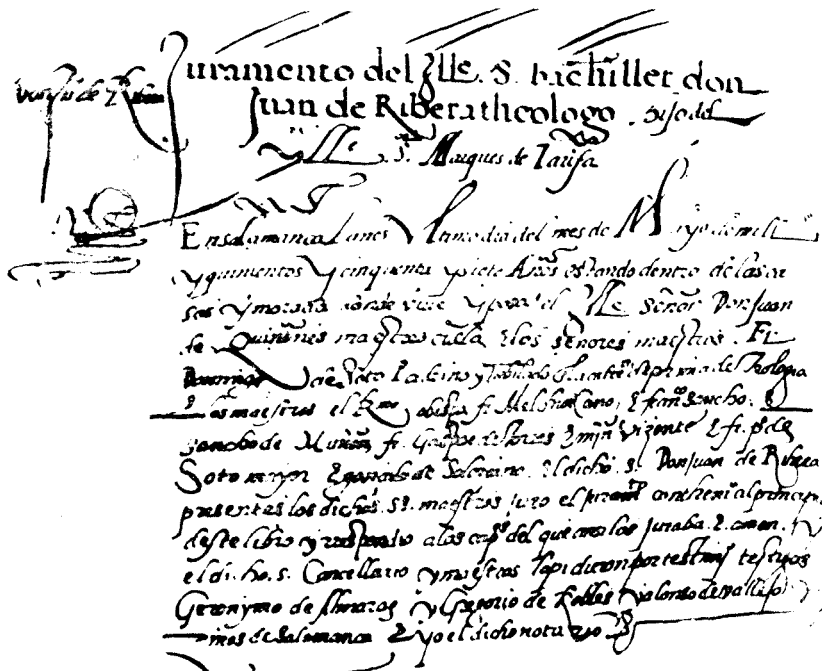 Juramento del Ylle. S. bachiller don
Juan de Ribera theologo . hijo del
Ylle . S. Marques de Tarifa
En salamanca Lunes Vltimo dia del mes de Mayo de mill
y quinientos y cinquenta y siete Años estando dentro de las ca
sas y morada donde vive y posa el Ylle Señor Don Juan
de Quiñones maestrescuela E los señores maestros . Fr
Domingo de Soto de prima de Theologia
E los maestros el Rmo obispo fr Melchor Cano , E franco Sancho . E
Sancho de Muñon fr Gaspar de torres E mjn Vizente E fr. po de
Soto mayor E de . El dicho . S. Don Juan de Ribera
presentes los dichos . SS. maestros juro el juramto al principio
deste libro y respondio a los del que juraba . E amen .
el dicho . S. Cancellario y maestros por testimo testigos
Geronymo de Almaraz y Gregorio de Robles y alonso de vallejo
de Salamanca E yo el dicho notario